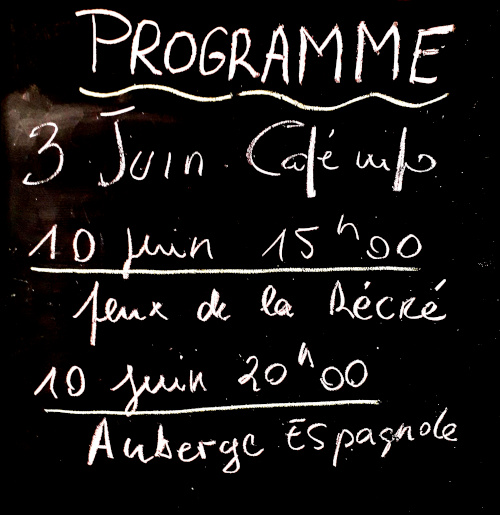 PROGRAMME
3 Juin Café info
10 juin 15h00
Jeux de la Récré
10 juin 20h00
Auberge Espagnole